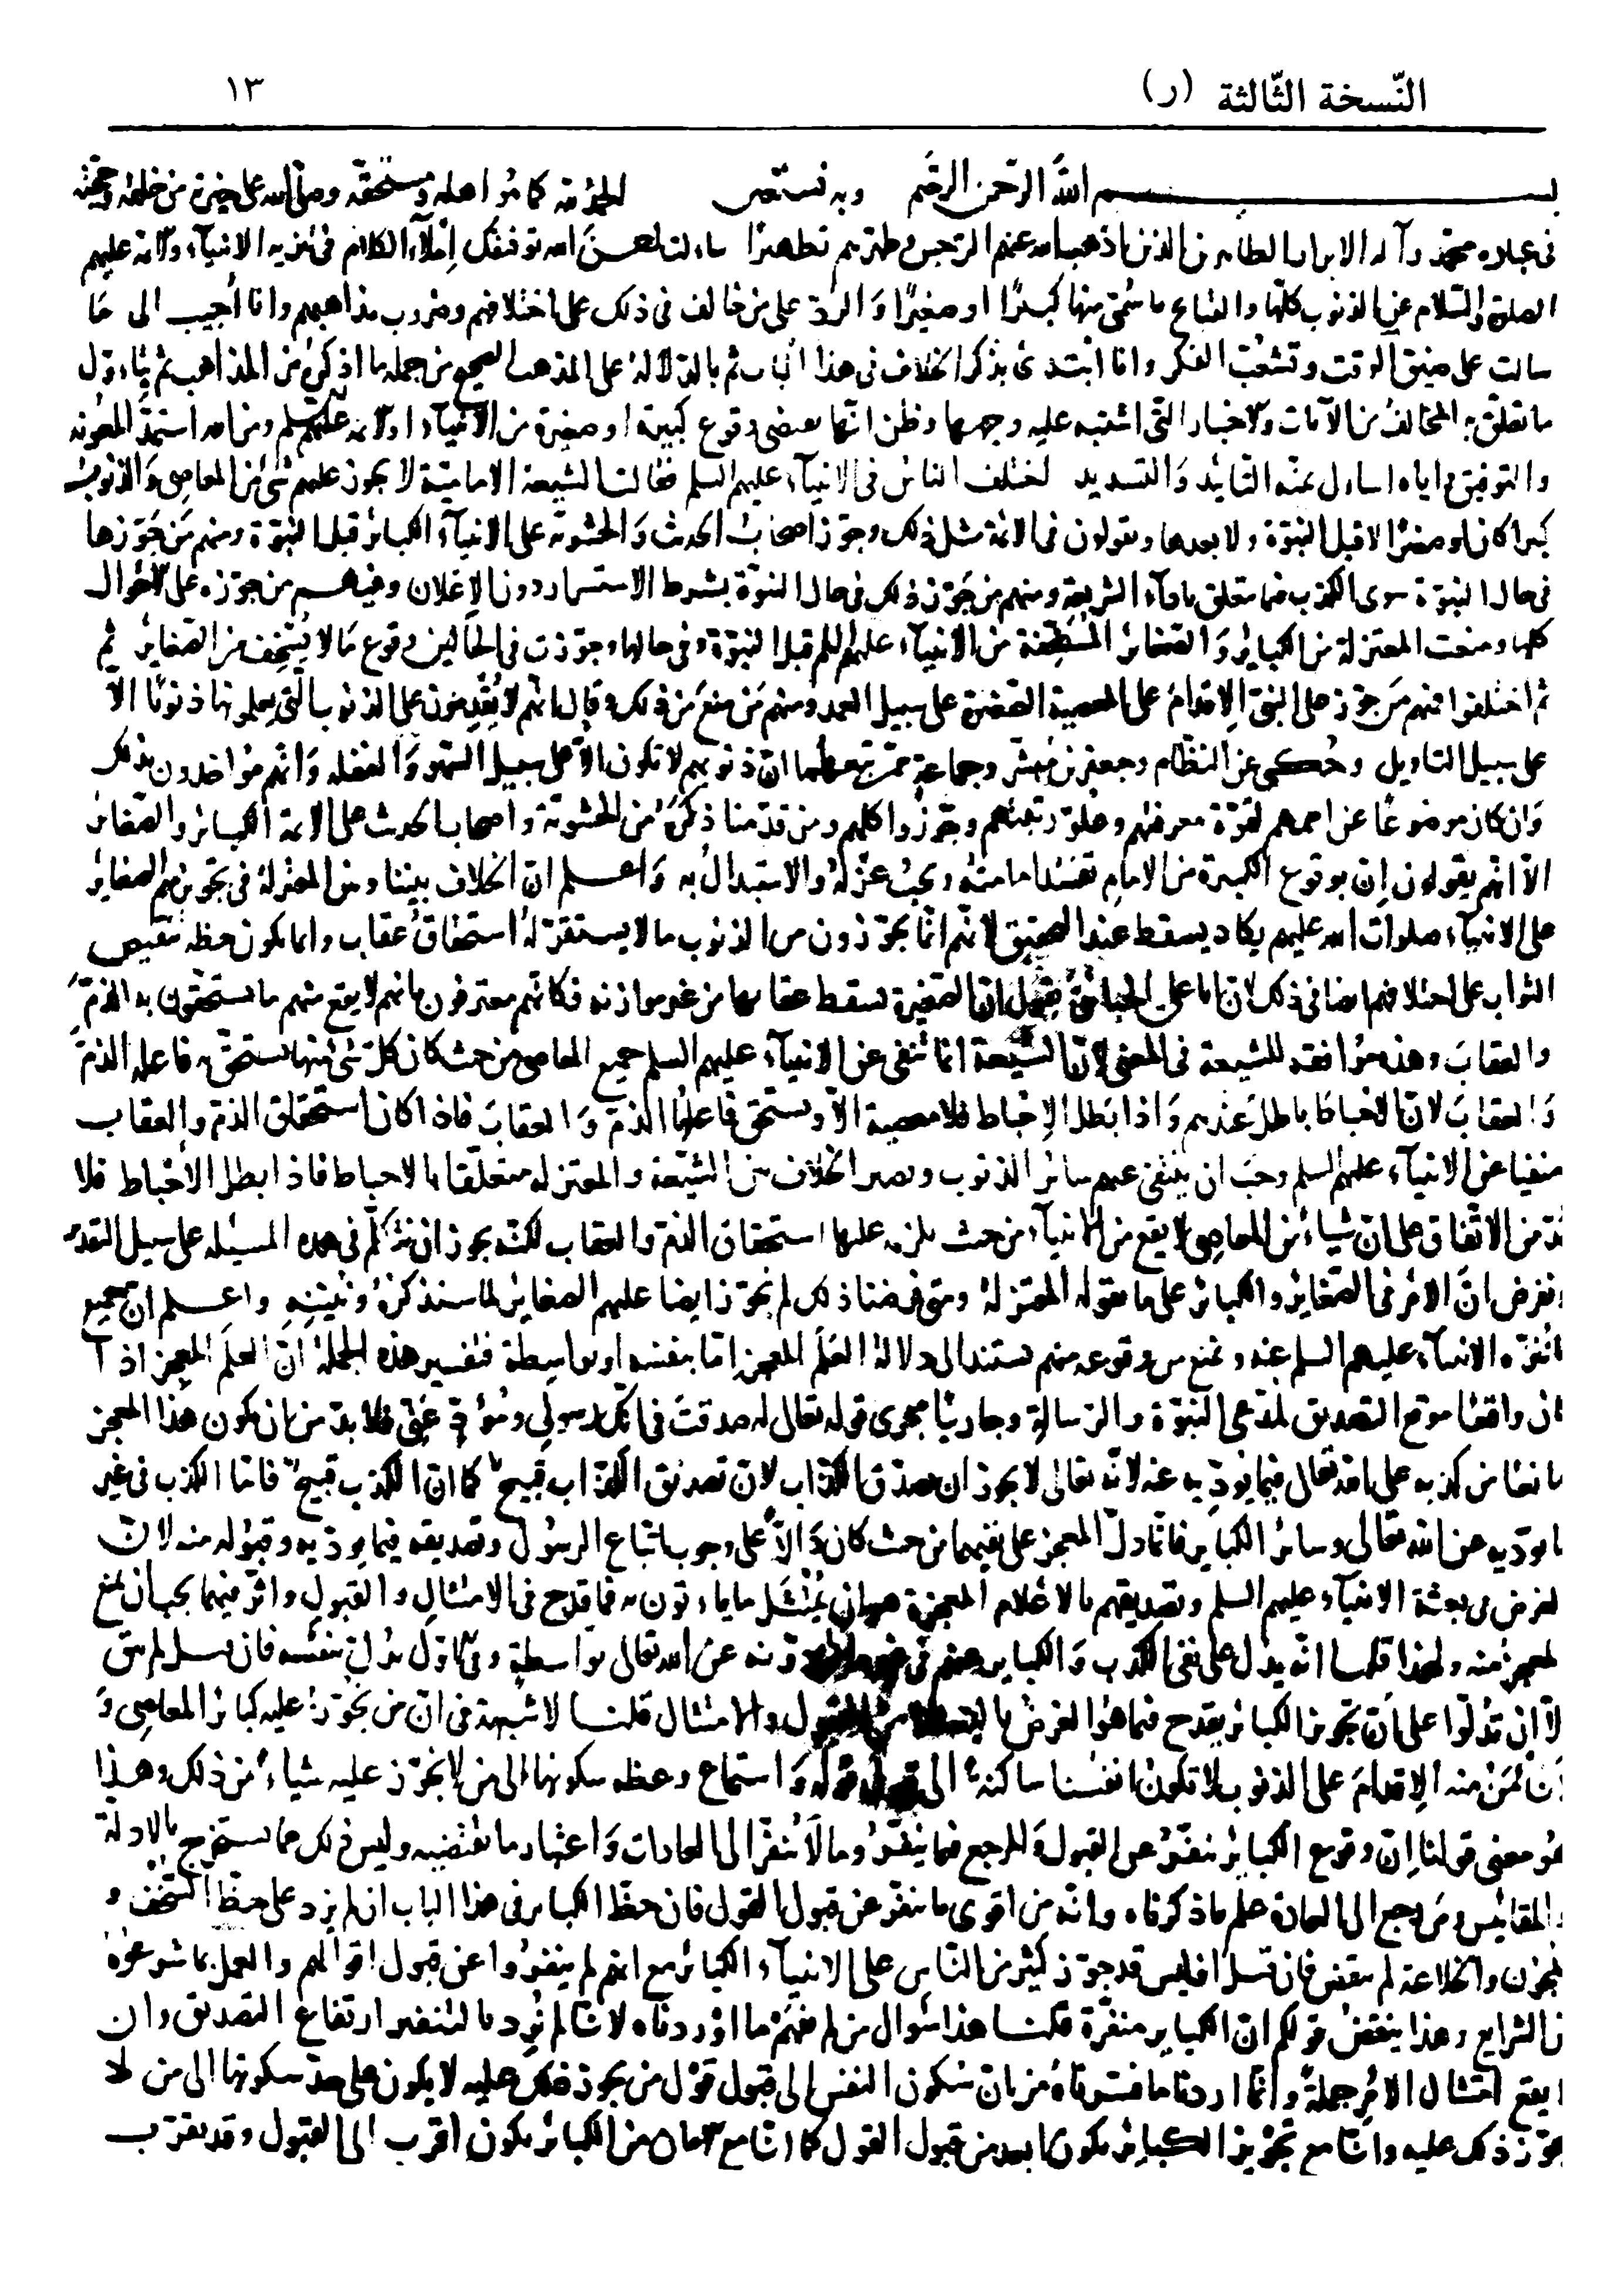 النّسخة الثّالثة (ر) ١٣
بسم الله الرّحمن الرّحيم وبه نستعين الحمد لله كما هو اهله ومستحقه وصلى الله على خيرته من خلقه وحجته
فى عباده محمّد وآله الابرار الطاهرين الذين اذهب الله عنهم الرّجس وطهرهم تطهيرًا سالت احسن الله توفيقك إملآء الكلام فى تنزيه الانبيآء والائمة عليهم
الصلوة والسّلام عن الذنوب كلّها والقبائح ما سُمّى منها كبيرًا او صغيرًا وَالرّد على من خالف فى ذلك على اختلافهم وضروب مذاهبهم وانا أجيب الى مَا
سالت على ضيق الوقت وتشعّب الفكر وانا ابتدئ بذكر الخلاف فى هذا الباب ثم بالدّلالة على المذهب الصحيح من جملة ما اذكره من المذاهب ثم بتأويل
ما تعلّق به المخالف من الآيات والاخبار التّى اشتبه عليه وجهها وظن انّها تقتضى وقوع كبيرة او صغيرة من الانبيآء والائمة عليهم السلم ومن الله استمدّ المعونة
والتوفيق واياه اسأل التّأييد وَالتسديد اختلف الناس فى الانبيآء عليهم السلم فقالت الشيعة الاماميّة لا يجوز عليهم شئ من المعاصى وَالذنوب
كبيرا كان او صغيرًا لا قبل النبوّة ولا بعدها ويقولون فى الائمة مثل ذلك وجوّز اصحاب الحديث وَالحشويّة على الانبيآء الكبائر قبل النبوّة ومنهم مَن جَوّزها
فى حال النبوّة سوى الكذب فيما يتعلق باداء الشريعة ومنهم من جَوّز ذلك فى حال النبوّة بشرط الاستسرار دون الاعلان وفيهم من جوّزه على الاحوال
كلها ومنعت المعتزلة من الكبائر وَالصغائر المُستخفة من الانبيآء عليهم السلم قبل النبوّة وفى حالها وجوّزت فى الحالين وقوع مَا لا يُستخف من الصّغاير ثم
ثم اختلفوا فمنهم مَن جوّز على النبىّ الاقدام على المعصية الصّغيرة على سبيل العمد ومنهم مَن منع مَن ذلك وقال انهم لا يُقدِمون على الذنوب التّى يعلمونها ذنوبًا الّا
على سبيل التاويل وحُكى عن النظّام وجعفر بن مُبشّر وجماعة ممّن تبعهما انّ ذنوبهم لا تكون الّا على سبيل السّهو وَالغفلة وَانهم مؤاخذون بذلك
وَان كان موضوعًا عن اممهم لقوّة معرفتهم وعلوّ رتبتهم وجوّزوا كلهم ومن قدّمنا ذكره من الحشويّة واصحاب الحديث على الائمة الكبائر والصّغائر
الّا انّهم يقولون إن بوقوع الكبيرة من الامام تفسد امامته ويجب عزله والاستبدال به وَاعلم انّ الخلاف بيننا وبين المعتزلة فى تجويزهم الصغاير
على الانبيآء صلوات الله عليهم يكاد يسقط عند التحقيق لانّهم انّما يجوّزون من الذنوب ما لا يستقرّ له استحقاقُ عقاب وانما يكون حظه تنقيص
الثواب على اختلافهم ايضا فى ذلك لان ابا على الجبائى يقول ان الصّغيرة يسقط عقابها من غير موازنه فكانّهم معترفون بانهم لا يقع منهم ما يستحقون به الذمّ
والعقابَ وهذه موافقه للشيعة فى المعنى لانّ الشّيعة انما تنفى عن الانبيآء عليهم السلم جميع المعاصى من حيث كان كلّ شئ منها يستحقّ به فاعله الذمّ
وَالعقابَ لانّ الاحباط باطل عندهم وَاذا بَطل الإحباط فلا معصية الّا ويستحق فاعلها الذمّ وَالعقابَ فاذا كان استحقاق الذمّ والعقاب
منفيا عن الانبيآء عليهم السلم وجبَ ان ينتفى عنهم سائر الذنوب ويصير الخلاف بين الشيّعة والمعتزله متعلّقا بالاحباط فاذا بطل الأحباط فلا
بُدّ من الاتّفاق على انّ شياء من المعاصى لا يقع من الانبيآء من حيث يلزمه عليها استحقاق الذم والعقاب لكنّه يجوز ان نتكلّم فى هذه المسئله على سبيل التقدير
ونفرض انّ الامر فى الصّغاير والكبائر على ما تقوله المعتزلة ومتى فرضنا ذلك لم نجوّز ايضا عليهم الصغاير لما سنذكره ونبيّنه واعلم ان جميع
ما نُنزّه الانبيآء عليهم السلم عنه ونمنع من وقوعه منهم يستند الى دلالة العَلَم المعجز امّا بنفسه او بواسطة فتفسير هذه الجملة انّ العلم المعجز اذا
كان واقعًا موقع التصديق لمدّعى النبوّة والرّسالة وجاريًا مجرى قوله تعالى له صدقتَ فى انّك رسولى ومُؤدٍّ عنّى فلا بدّ من ان يكون هذا المعجز
مانعًا من كذبه على الله تعالى فيما يؤدّيه عنه لانّه تعالى لا يجوز ان يصدّق الكذّاب لان تصديق الكذّاب قبيح كما انّ الكذب قبيح فامّا الكذب فى غير
ما يؤدّيه عن الله تعالى وسائر الكباير فانّما دلّ المعجز على نفيهما من حيث كان دَالًّا على وجوب اتباع الرسُول وتصديقه فيما يوديه وقبوله منه لان
الغرض من بعثة الانبيآء عليهم السلم وتصديقهم بالاعلام المعجزة هو ان يُمْتَثَل ما ياءتون به فما قدح فى الامتثال والقبول واثّر فيهما يجب ان يمنع
المعجز منه ولهذا قلنا انّه يدلّ على نفى الكذب وَالكباير عنهم فى غير ما يؤدّونه عن الله تعالى بواسطة وفى الاوّل يدلّ بنفسه فان قيل لم يبق
الّا ان تدُلّوا على أن تجويز الكبائر يقدح فيما هو الغرض بالبعثة من القبول والامتثال قلنا لا شبهة فى انّ من يجوّز عليه كبائر المعاصى وَ
لا نأمَن منه الاقدامَ على الذنوب لا تكون انفسنا ساكنة الى قبول قوله وَاستماع وعظه سكونها الى من لا نجوّز عليه شياء من ذلك وهذا
هُو معنى قولنا إنّ وقوع الكبائر منفّر عن القبول والمرجع فيما ينفّر وما لا يُنفّر الى العادات وَاعتبار ما تقتضيه وليس ذلك ممّا يستخرج بالادلة
والمقائيس ومَن رجع الى العادة علم ما ذكرناه وانّه من اقوى ما ينفّر عن قبول القول فان حظّ الكبائر فى هذا الباب ان لم يزد على حظّ السّخف و
المجون والخلاعة لم ينقص فان قيل افليس قد جوّز كثير من النّاس على الانبيآء الكبائر مع انهم لم ينفروا عن قبول اقوالهم والعمل بما شرعوه
من الشرايع وهذا ينقض قولكم ان الكباير منفّرة قلنا هذا سُوال من لم يفهم ما اوردناه لانّا لم نُرِد بالتنفير ارتفاع التصديق وان
لا يقع امتثال الامر جملةً وانّما اردنا ما فسّرناه من ان سكون النفس الى قبول قول من يجوز ذلك عليه لا يكون على حد سكونها الى من لا
يجوّز ذلك عليه وانّا مع تجويز الكبائر نكون ابعد من قبول القول كما انّا مع الامان من الكبائر نكون اقرب الى القبول وقد يقرب